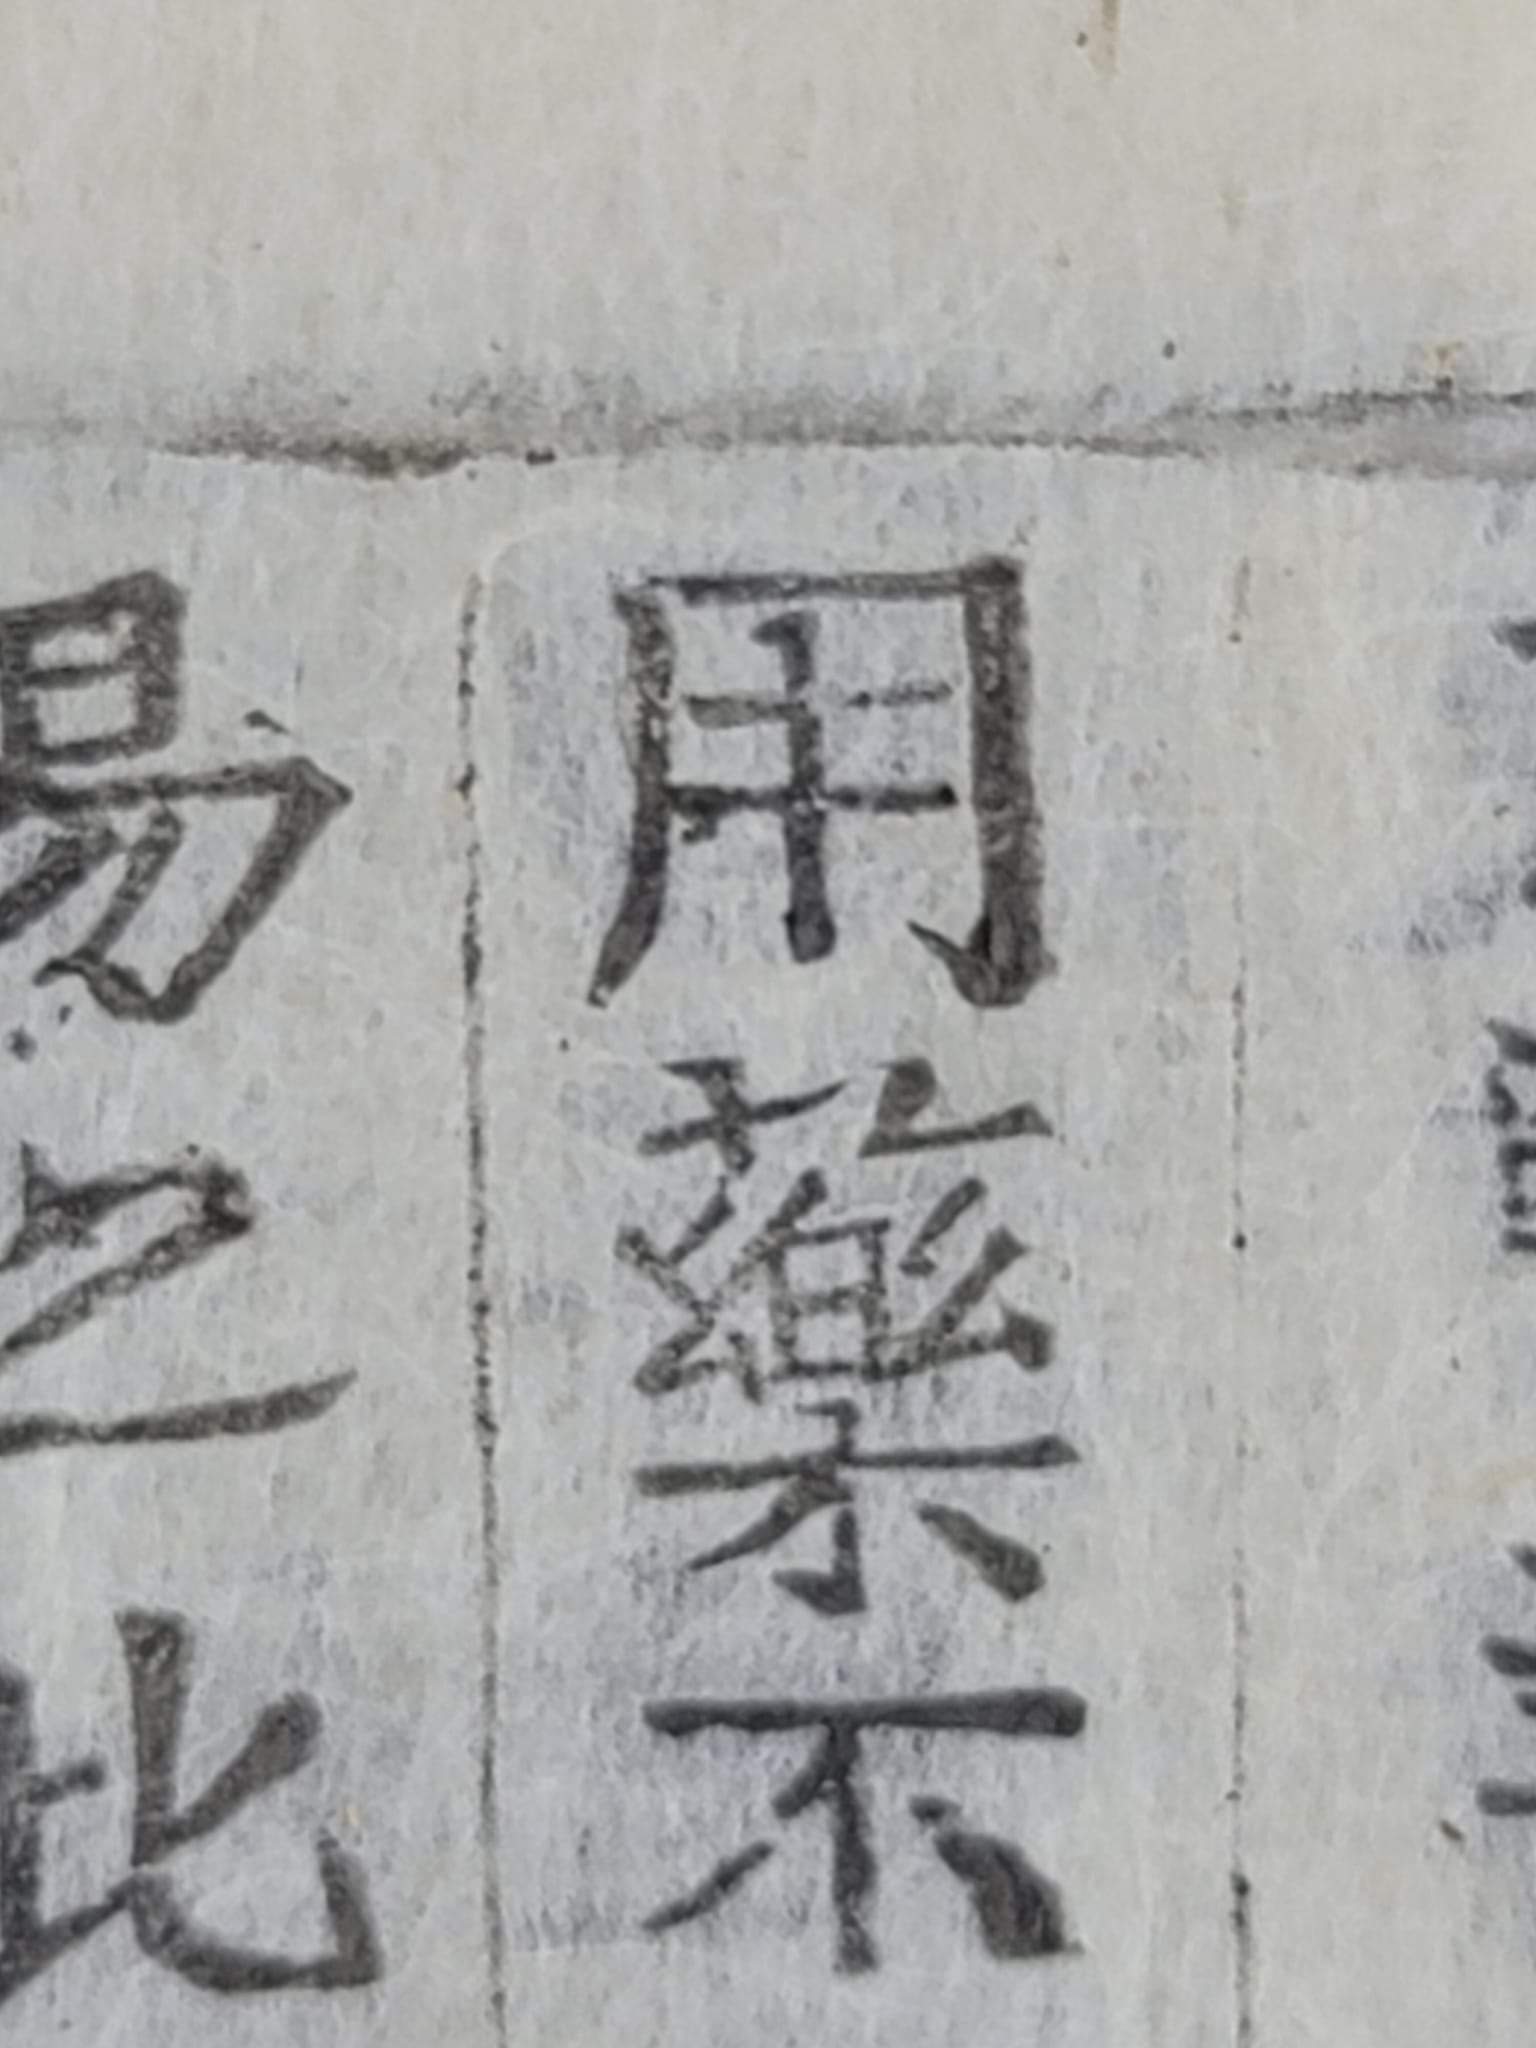 用藥不
易之此